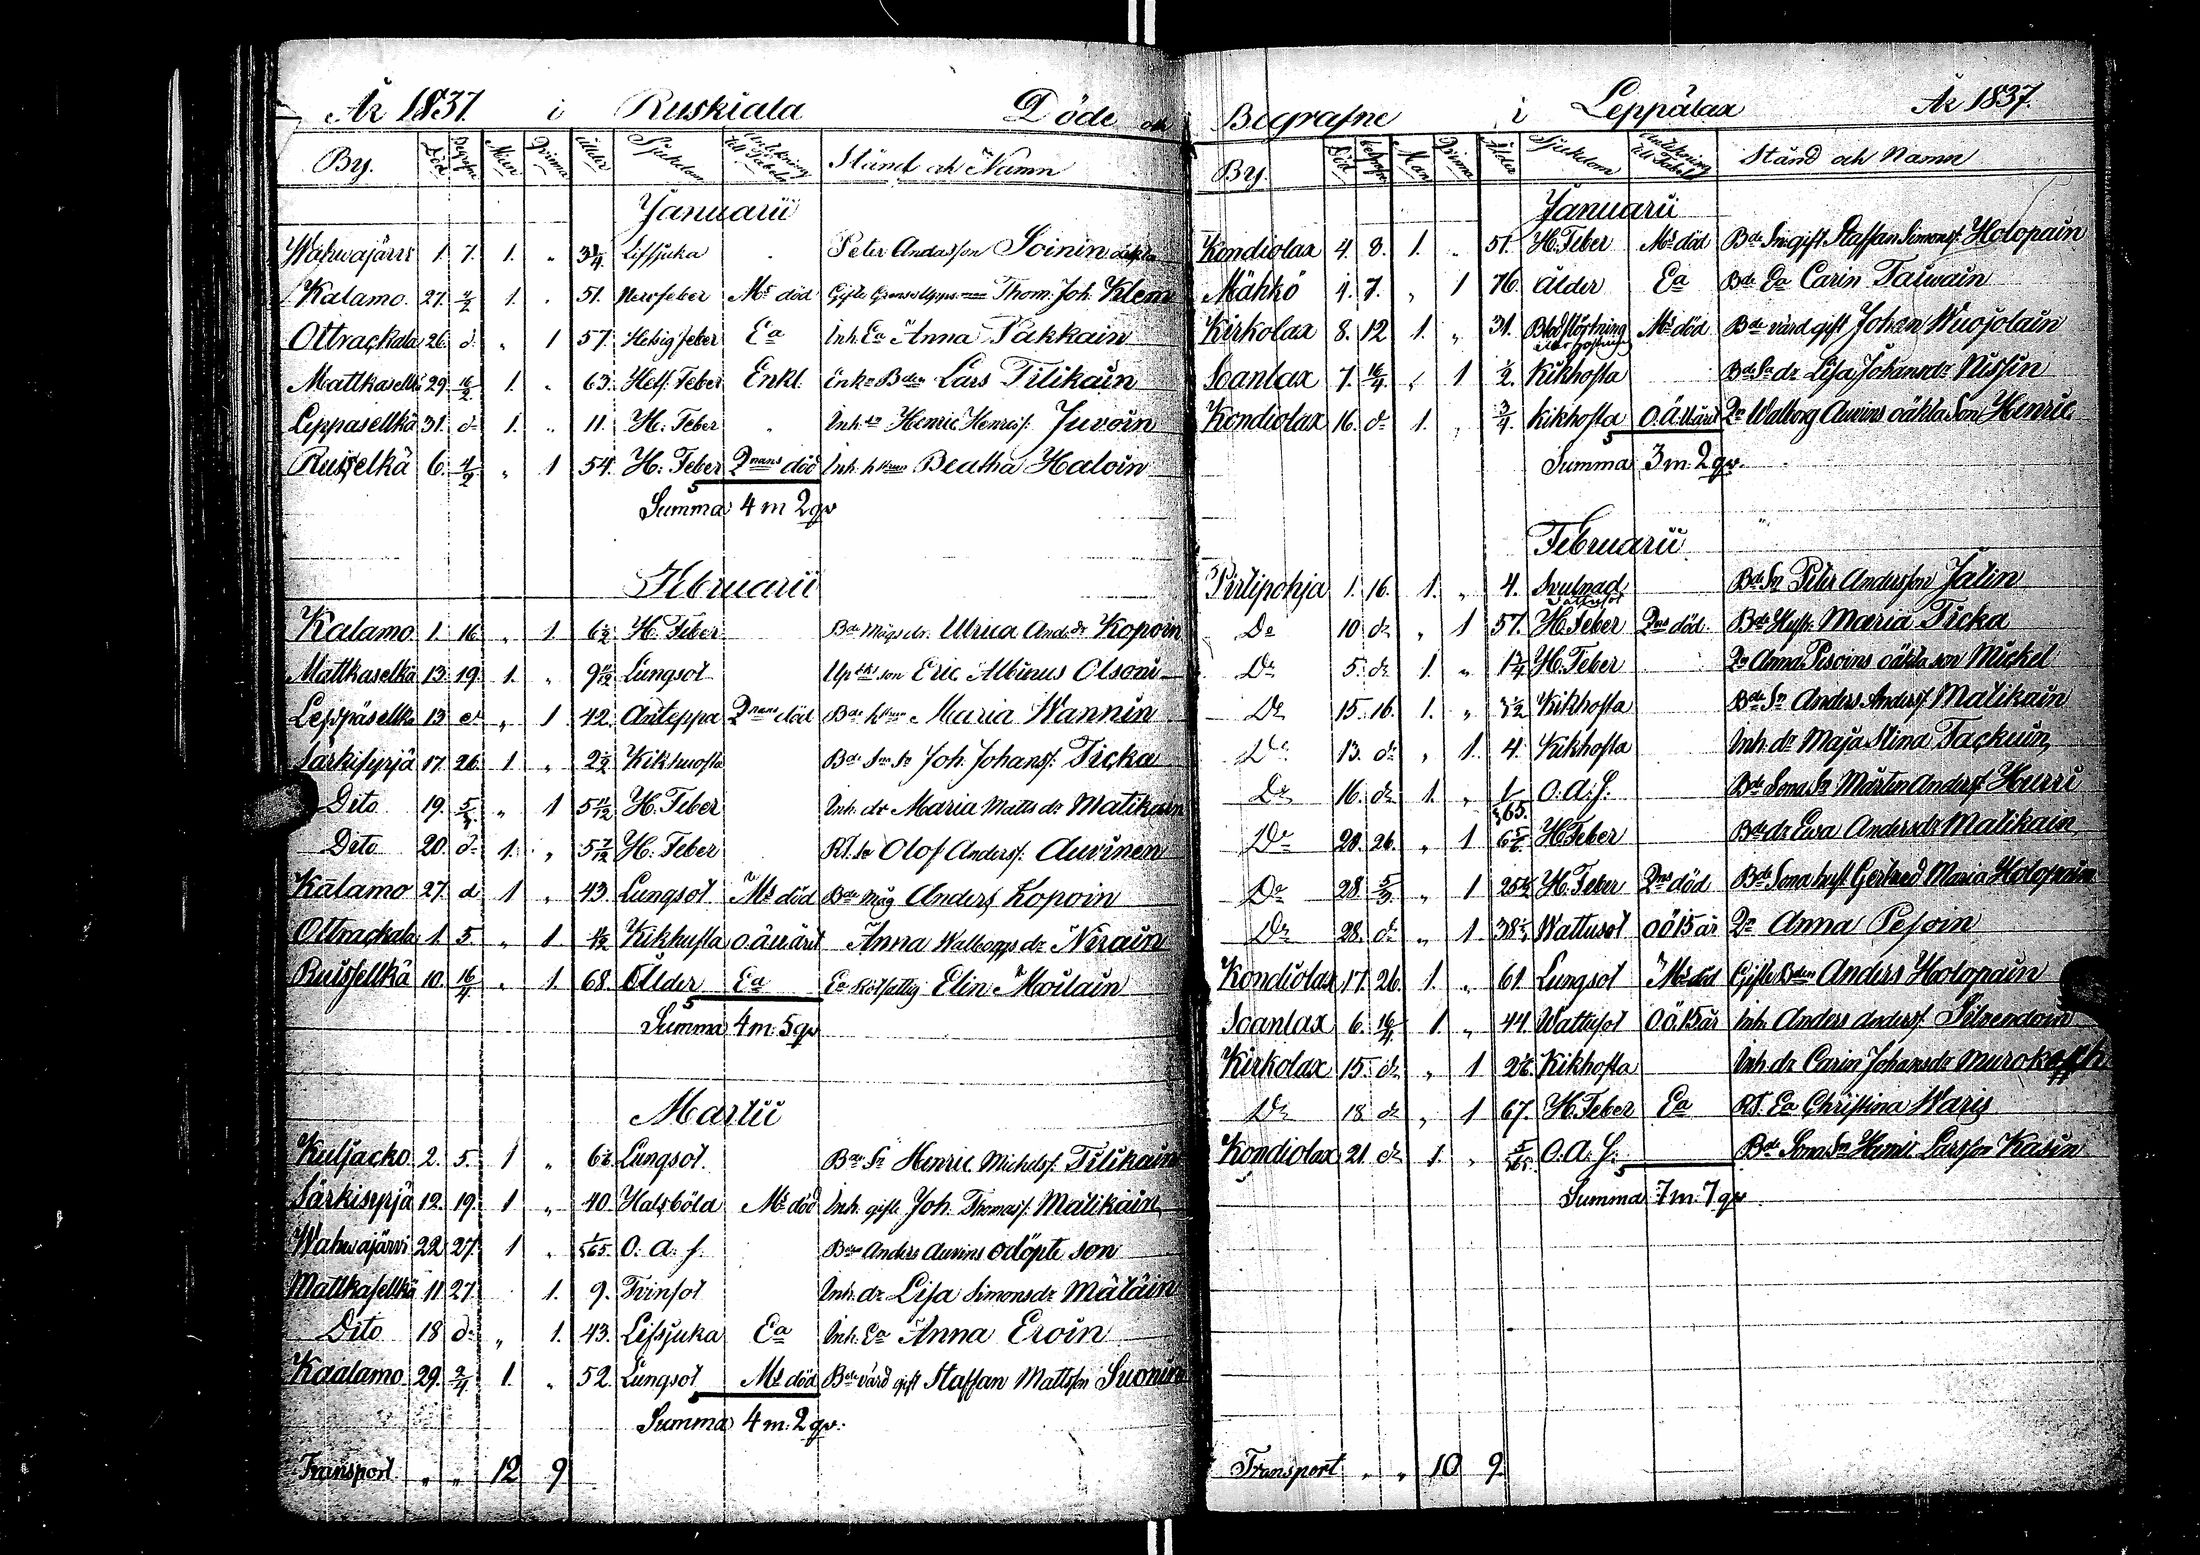 År 1837. i Ruskiala Döde och
By. Död Begrafne Män Qvinna Ålder Sjukdom Anteckning till Tabell Stånd och Namn
Januarii
Wahwajärvi 1. 7. 1. " 3/4 Lifsjuka " Peter Andersson Soinin
Kalamo. 27. 4/2 1. " 51. Nervfeber Ms död Gifte Thom. Joh. Klem
Ottrackala 26. d: " 1 57. Hetsig feber Ea Inh. Ea Anna Pakkain
Mattkaselkä 29. 16/2 1. " 63. Hets. Feber Enkl. Enkl: Bden Lars Tilikain
Leppaselkä 31. d: 1. " 11. H. Feber " Inh. sn Henric Henrics. Juvoin
Ruisselkä 6. 4/2 " 1 54. H. Feber Qnans död Inh. hstrun Beatha Haloin
Summa 4 m 2 qv
Februarii
Kalamo 1. 16 " 1. 6 1/2 H. Feber Bde Mågs dr. Ulrica And. dr Kopoin
Mattkaselkä 13. 19. 1. " Lungsot son Eric Albinus Olsoni
Leppäselkä 13 d " 1 42. Anteppa Qnans död Bde hstrun Maria Wannin
Särkisyrjä 17. 26. 1. " 2 1/2 Kikhosta Bde Sons Sn Joh. Johans. Ticka
Dito 19. 5/3 " 1 5 11/12 H. Feber Inh. dr Maria Matts dr Matikain
Dito 20. d: 1. " 5 7/12 H. Feber Rt. Sn Olof Anders. Auvinen
Kalamo 27. d 1 " 43. Lungsot Ms död Bde Måg Anders Kopoin
Ottrackala 1. 5. " 1 1/2 Kikhosta o.ä. Anna Walborgs dr Nirain
Ruisselkä 10. 16/4 " 1. 68. Ålder Ea Ea Rotfattig Elin Moilain
Summa 4 m: 5 qv
Martii
Kuljacko 2. 5. 1 " Lungsot. Bde Sn Henric Michels. Tilikain
Särkisyrjä 12. 19. 1 " 40. Halsböld Ms död Inh. gifte Joh. Thomas. Matikain
Wahwajärvi 22. 27. 1 " 1/365. O. a. f. Bde Anders Auvins odöpte son
Mattkaselkä 11 27. 1. 9. Tvinsot Inh. dr Lisa Simonsdr Mätäin
Dito 18 d: " 1. 43. Lifsjuka Ea Inh. Ea Anna Eroin
Kaalamo 29. 2/4 1. " 52. Lungsot Ms död Bde värd gift Staffan Mattsson Suonin
Summa 4 m: 2 qv.
Transport " " 12 9
Begrafne i Leppälax År 1837.
By. Död begrafne Män Qvinna Ålder Sjukdom Anteckning till Tabell Stånd och Namn
Januarii
Kondiolax 4. 8. 1. " 51. H. Feber Ms död Bde Sn gift Staffan Simons. Holopain
Mähkö 4. 7. " 1 76. Ålder Ea Bde Ea Carin Taiwain
Kirkolax 8. 12 1. " 31. Blodstörtning Ms död Bde värd gift Johan Wuojolain
Soanlax 7. 16/4 " 1 1/2. Kikhosta Bde Sn dr Lisa Johansdr Nissin
Kondiolax 16. d: 1. " 3/4. Kikhosta Qn Walborg Auvins oäkta Son Henric
Summa 3 m. 2 qv.
Februarii
Pirttipohja 1. 16. 1. " 4. Svulnad Bde Sn Peter Andersson Jalin
Do 10 d: " 1 57. H. Feber Qns död. Bde Hust. Maria Ticka
Do 5. d: 1. " 1 3/4 H. Feber Qn Anna Pesoins oäkta son Mickel
Do 15. 16. 1. " Kikhosta Bde Sn Anders Anders. Matikain
Do 13. d: " 1. 4. Kikhosta Inh. dr Maja Stina Tackuin
Do 16. d: 1. " 1/365. O. a. f. Bde Sons Sn Mårten Anders. Hurri
Do 20. 26. " 1 H. Feber Bde dr Ewa Andersdr Matikain
Do 28 5/3 " 1 H. Feber Qns död Bde Sons hust. Gertrud Maria Holopain
Do 28. d: " 1. Wattusot o ö 15 år Qn Anna Pesoin
Kondiolax 17. 26. 1. " 61 Lungsot Ms död Gifte Bden Anders Holopain
Soanlax 6. 16/4. 1 " 44. Wattusot o ö. 15 år Inh. Anders Anders. Silvendoin
Kirkolax 15. d: " 1 Kikhosta Inh. dr Carin Johansdr
Do 18 d: " 1 67. H. Feber Ea Rt. Ea Christina Waris
Kondiolax 21. d: 1. " 5/365. O. a. f. Bde Sons Sn Henric Larsson Kasin
Summa 7 m. 7 qv
Transport " " 10 9.